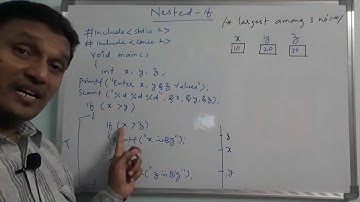 Nested-if
/* largest among 3 no's */
#include<stdio.h>
#include<conio.h>
void main()
{
int x, y, z;
printf("Enter x, y & z values");
scanf("%d %d %d", &x, &y, &z);
if (x >y)
{
if (x >z)
("x is Big");
("z is Big");
x y z
10 20 30
z
x
y